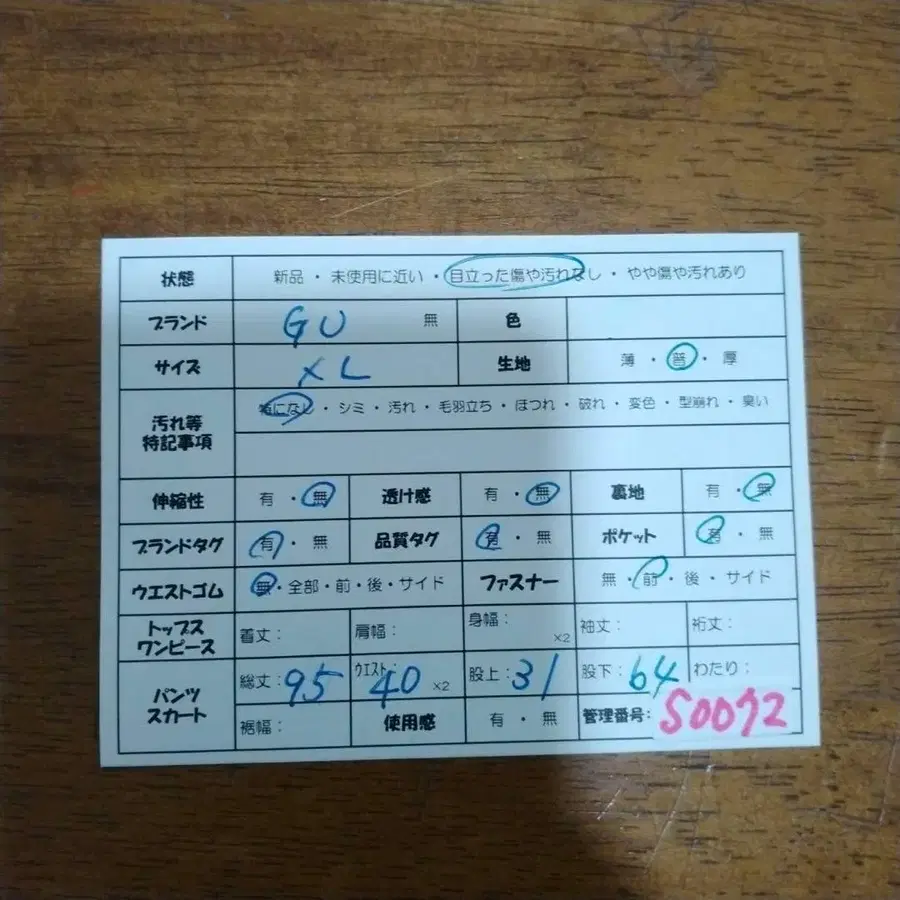 状態 新品 ・ 未使用に近い ・ 目立った傷や汚れなし ・ やや傷や汚れあり
ブランド GU 無 色
サイズ XL 生地 薄 ・ 普 ・ 厚
汚れ等 特記事項 特になし ・ シミ ・ 汚れ ・ 毛羽立ち ・ ほつれ ・ 破れ ・ 変色 ・ 型崩れ ・ 臭い
伸縮性 有 ・ 無 透け感 有 ・ 無 裏地 有 ・ 無
ブランドタグ 有 ・ 無 品質タグ 有 ・ 無 ポケット 有 ・ 無
ウエストゴム 無 ・ 全部 ・ 前 ・ 後 ・ サイド ファスナー 無 ・ 前 ・ 後 ・ サイド
トップス ワンピース 着丈： 肩幅： 身幅： ×2 袖丈： 裄丈：
パンツ スカート 総丈：95 ウエスト：40 ×2 股上：31 股下：64 わたり：
裾幅： 使用感 有 ・ 無 管理番号：S0072